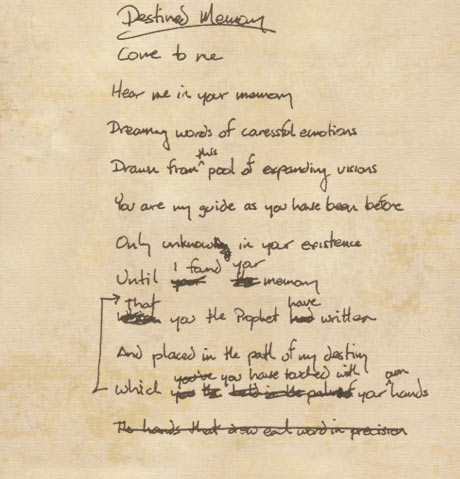 Destined Memory
Come to me
Hear me in your memory
Dreamy words of caressful emotions
Drawn from this pool of expanding visions
You are my guide as you have been before
Only unknown in your existence
Until I found your memory
That you the Prophet have written
And placed in the path of my destiny
Which you have touched with your own hands
The hands that drew each word in precision